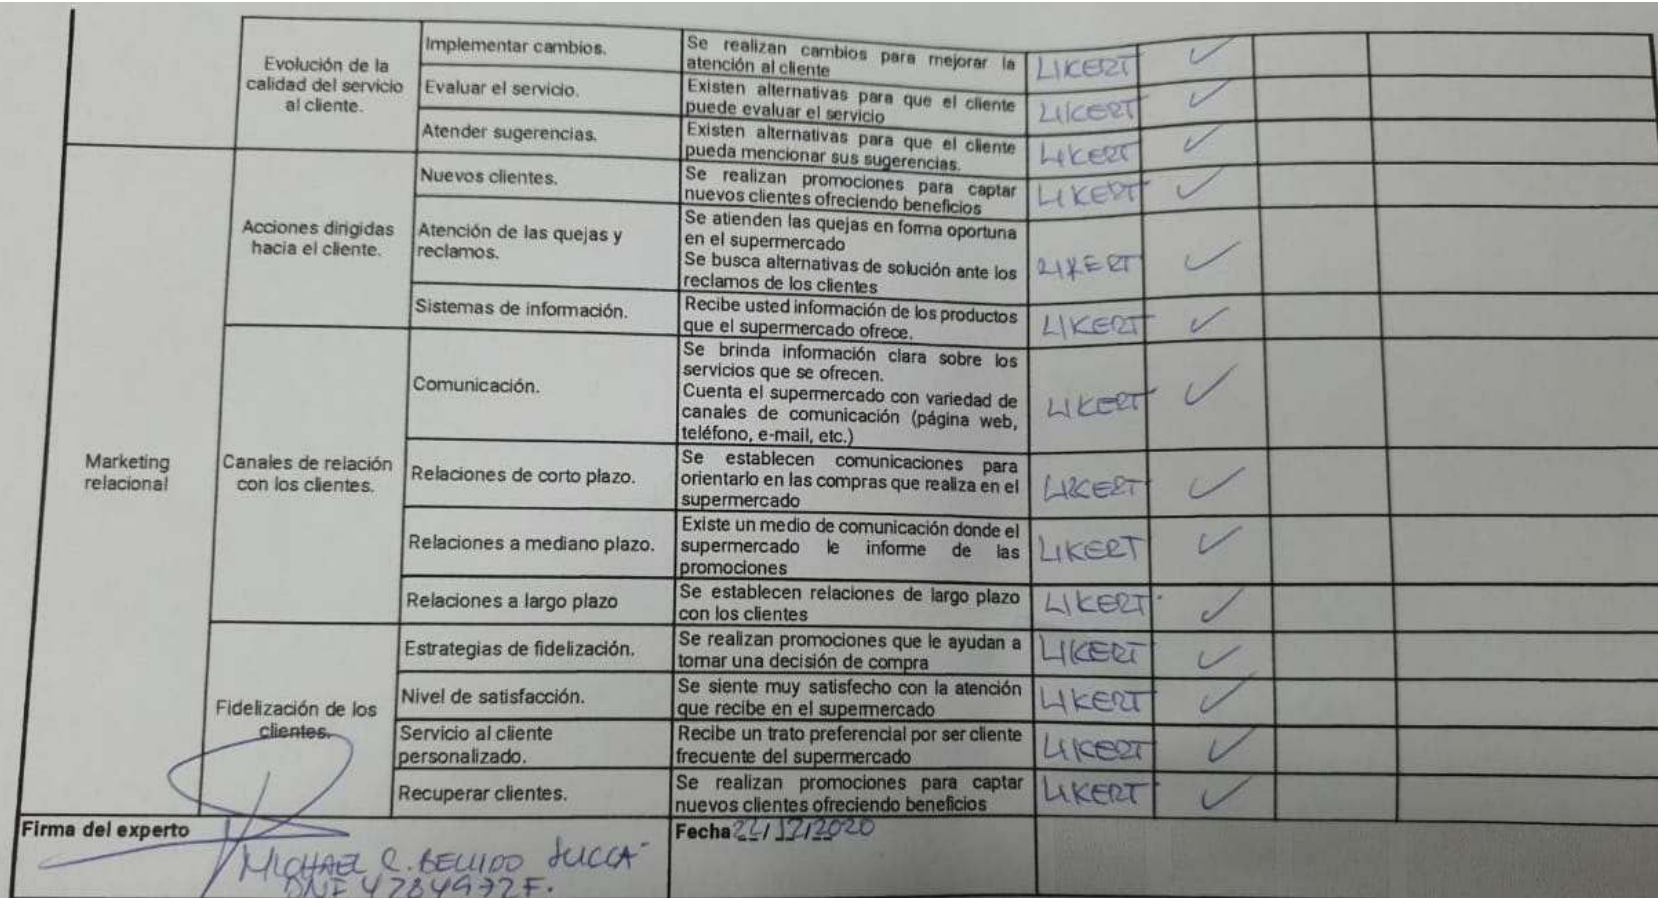 Evolución de la
calidad del servicio
al cliente.
Implementar cambios.
Se realizan cambios para mejorar la
atención al cliente
LIKERT
Evaluar el servicio.
Existen alternativas para que el cliente
puede evaluar el servicio
LIKERT
Atender sugerencias.
Existen alternativas para que el cliente
pueda mencionar sus sugerencias.
LIKERT
Marketing
relacional
Acciones dirigidas
hacia el cliente.
Nuevos clientes.
Se realizan promociones para captar
nuevos clientes ofreciendo beneficios
LIKERT
Atención de las quejas y
reclamos.
Se atienden las quejas en forma oportuna
en el supermercado
Se busca alternativas de solución ante los
reclamos de los clientes
LIKERT
Sistemas de información.
Recibe usted información de los productos
que el supermercado ofrece.
LIKERT
Canales de relación
con los clientes.
Comunicación.
Se brinda información clara sobre los
servicios que se ofrecen.
Cuenta el supermercado con variedad de
canales de comunicación (página web,
teléfono, e-mail, etc.)
LIKERT
Relaciones de corto plazo.
Se establecen comunicaciones para
orientarlo en las compras que realiza en el
supermercado
LIKERT
Relaciones a mediano plazo.
Existe un medio de comunicación donde el
supermercado le informe de las
promociones
LIKERT
Relaciones a largo plazo
Se establecen relaciones de largo plazo
con los clientes
LIKERT
Fidelización de los
clientes.
Estrategias de fidelización.
Se realizan promociones que le ayudan a
tomar una decisión de compra
LIKERT
Nivel de satisfacción.
Se siente muy satisfecho con la atención
que recibe en el supermercado
LIKERT
Servicio al cliente
personalizado.
Recibe un trato preferencial por ser cliente
frecuente del supermercado
LIKERT
Recuperar clientes.
Se realizan promociones para captar
nuevos clientes ofreciendo beneficios
LIKERT
Firma del experto
MICHAEL R. BELLIDO
DNI
Fecha 22/12/2020